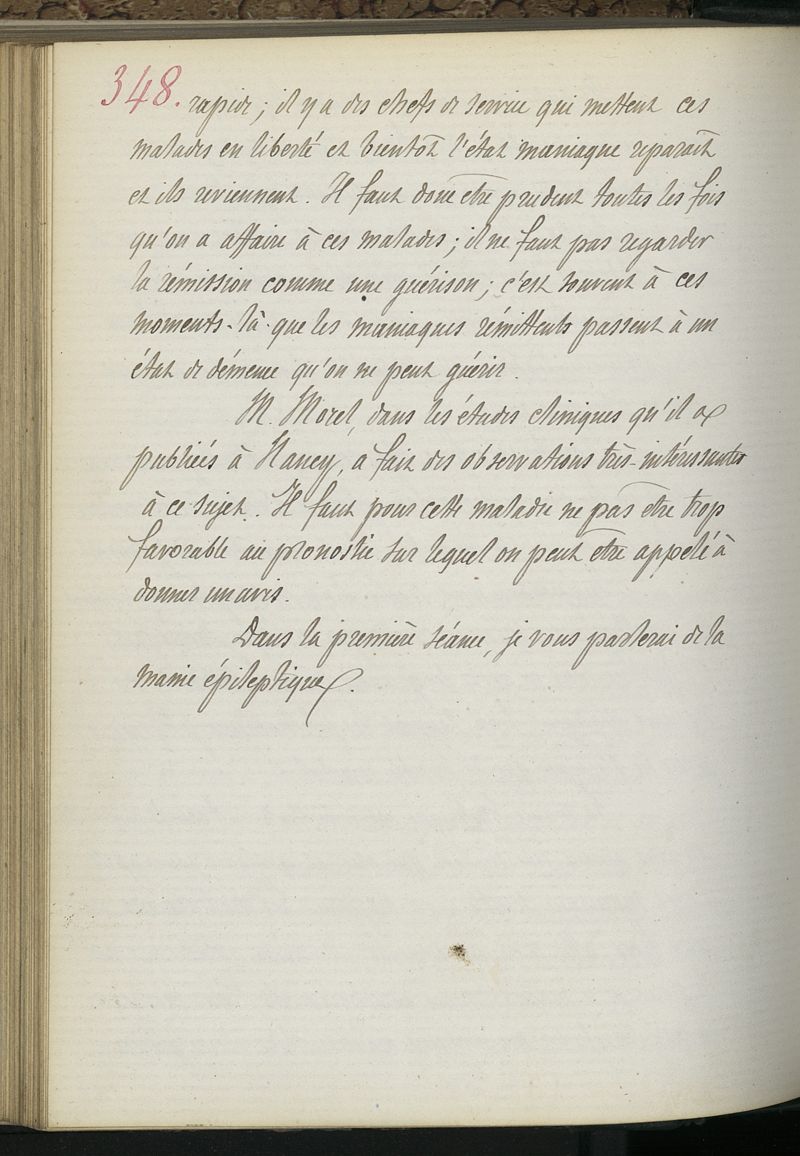 348.
rapide ; il y a des chefs de service qui mettent ces
malades en liberté et bientôt l'état maniaque reparaît
et ils reviennent. Il faut donc être prudent toutes les fois
qu'on a affaire à ces malades ; il ne faut pas regarder
la rémission comme une guérison ; c'est souvent à ces
moments-là que les maniaques rémittents passent à un
état de démence qu'on ne peut guérir.
M. Morel, dans les études cliniques qu'il a
publiées à Nancy, a fait des observations très-intéressantes
à ce sujet. Il faut pour cette maladie ne pas être trop
favorable au pronostic sur lequel on peut être appelé à
donner un avis.
Dans la première séance, je vous parlerai de la
manie épileptique.